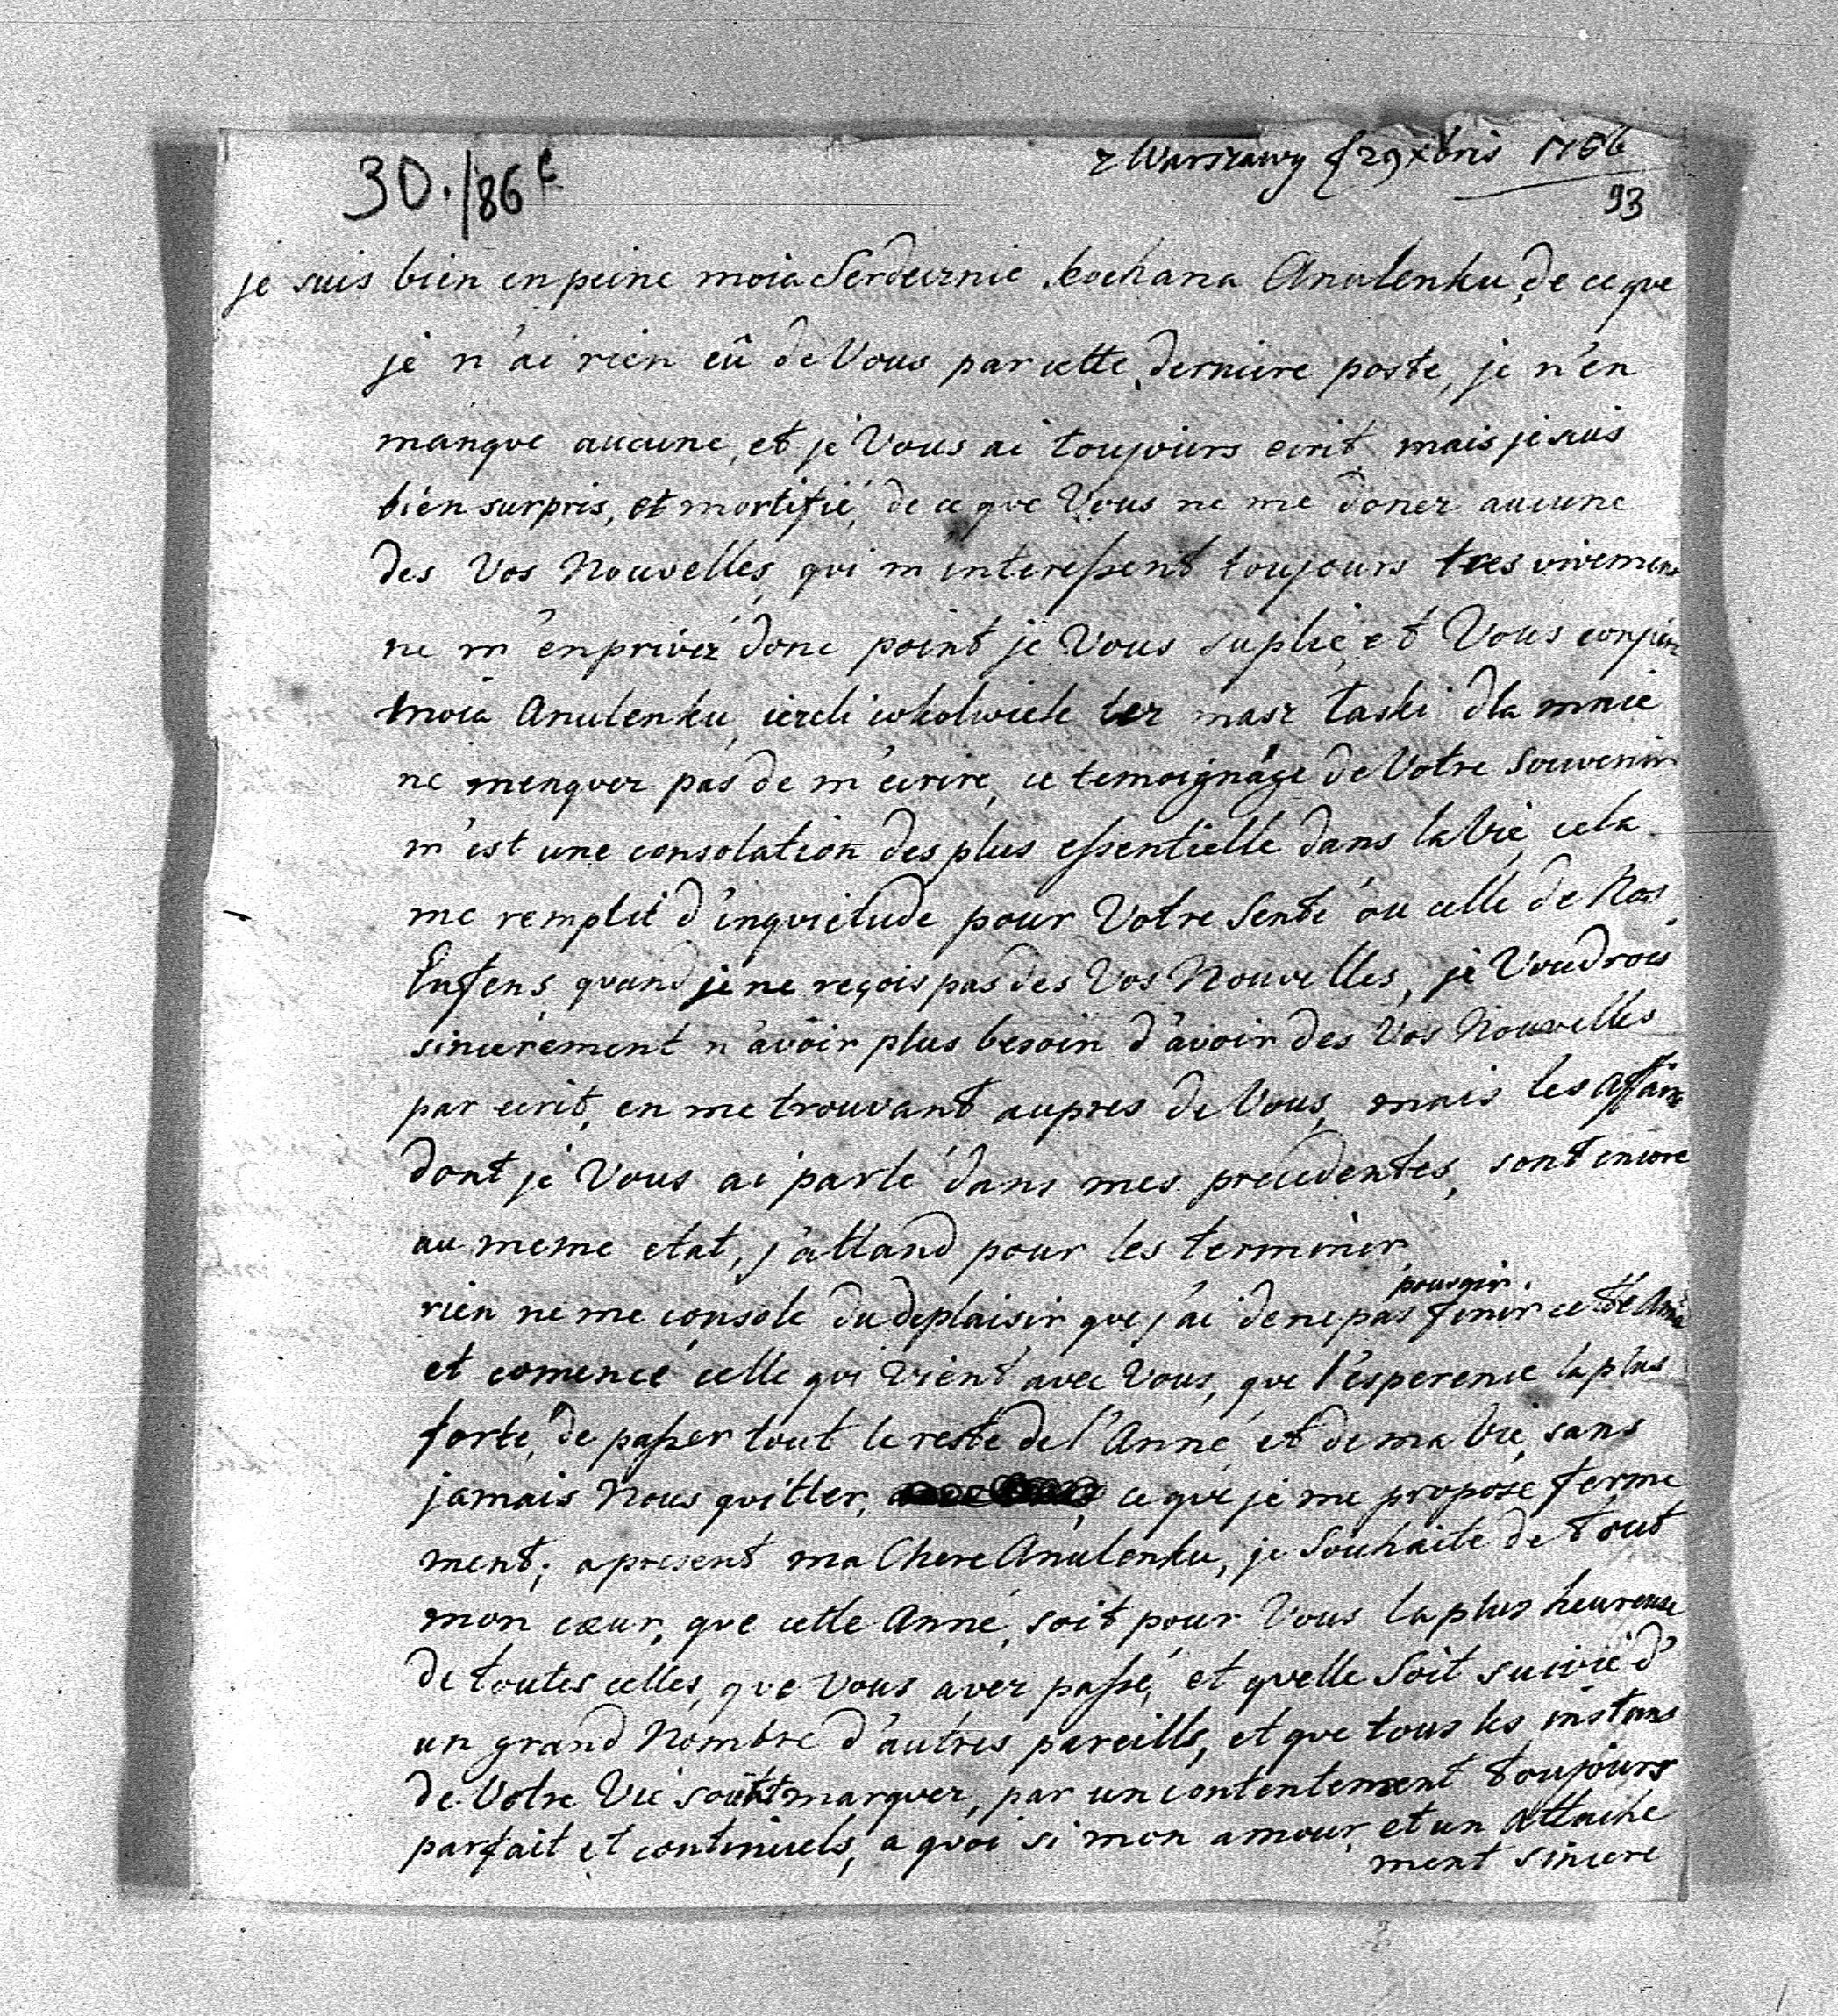 30./86
z Warszawy {29 xbris 1766
93
je suis bien en peine moia Serdecznie kochana Anulenku, de ce que
je n'ai rien eû de Vous par cette derniere poste, je n'en
manque aucune, et je Vous ai toujours ecrit, mais je suis
bien surpris, et mortifié, de ce que Vous ne me donez aucune
des Vos Nouvelles, qui m'interessent toujours tres vivement
ne m'en privéz donc point je Vous suplie, et Vous conjure
moia Anulenku, iezeli cokolwiek tez masz łaski dla mnie
ne menquez pas de m'ecrire, ce temoignage de Votre Souvenir
m'est une consolation des plus essentielle dans la Vie, cela
me remplit d'inquietude pour Votre Senté ou celle de Nos
Enfens, quand je ne reçois pas des Vos Nouvelles, je Voudrois
sincerement n'avoir plus besoin d'avoir des Vos Nouvelles
par ecrit, en me trouvant aupres de Vous, mais les affaires
dont je Vous ai parlé dans mes precedentes, sont encore
au meme etat, j'attand pour les terminer,
rien ne me console du deplaisir que j'ai de ne pas pouvoir finir cette
et comencé celle qui vient avec Vous, que l'esperence la plus
forte, de passer tout le reste de l'Anné, et de ma Vie, sans
jamais Nous quitter, ce que je me propose ferme
ment; apresent ma Chere Anulenku, je Souhaite de tout
mon cœur, que cette Anné, soit pour Vous la plus heureuse
de toutes celles, que Vous avez passé, et quelle Soit suivie d'
un grand Nombre d'autres pareills, et que tous les instans
de Votre Vie soint marquez, par un contentement toujours
parfait et continuels, a quoi si mon amour, et un attache
ment sincere